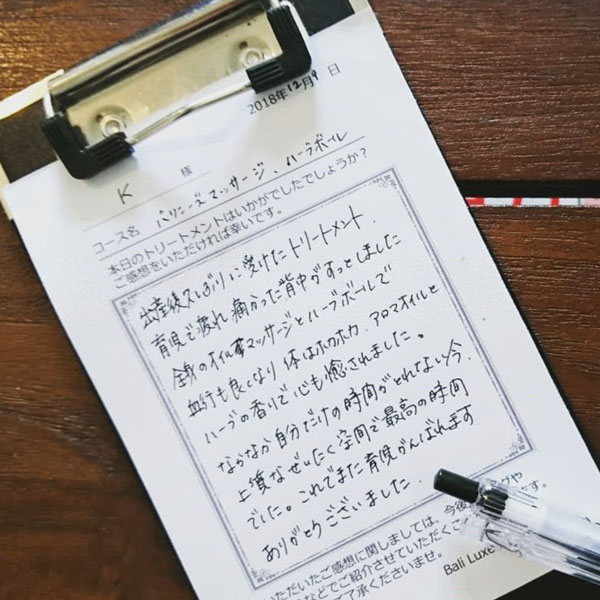 2018年12月9日
K 様
コース名 バリニーズマッサージ、ハーブボール
本日のトリートメントはいかがでしたでしょうか?
ご感想をいただければ幸いです。
出産後久しぶりに受けたトリートメント、
育児で疲れ、痛かった背中がすっとしました
全身のオイルマッサージとハーブボールで
血行も良くなり 体はホカホカ、アロマオイルと
ハーブの香りで心も癒されました。
なかなか自分だけの時間がとれない今、
上質なぜいたく空間で最高の時間
でした。これでまた育児がんばれます
ありがとうございました
いただいたご感想に関しましては、今後
などでご紹介させていただくこ
ご了承くださいませ。
Bali Luxe